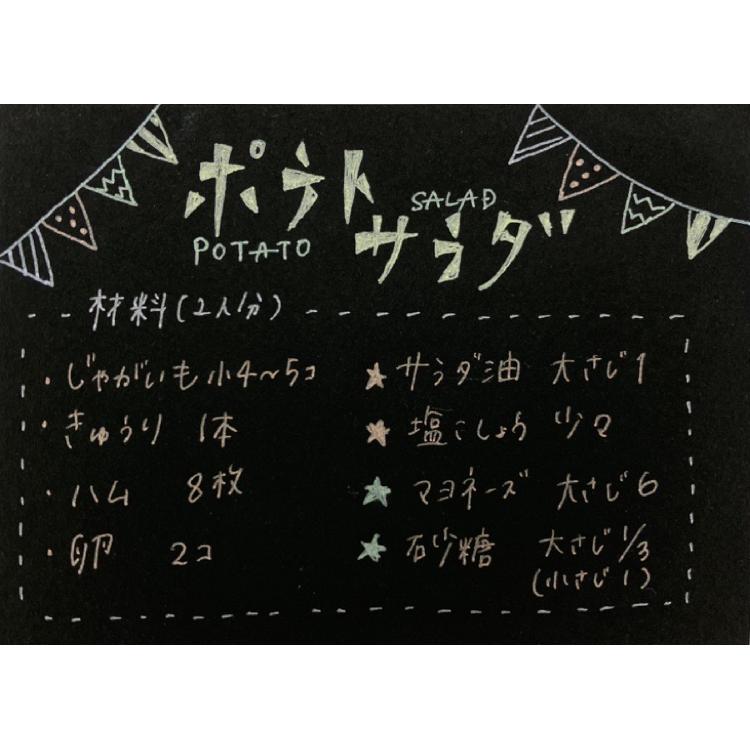 ポテト
POTATO
SALAD
サラダ
材料(2人分)
・じゃがいも 小4~5コ
・きゅうり 1本
・ハム 8枚
・卵 2コ
★サラダ油 大さじ1
★塩こしょう 少々
★マヨネーズ 大さじ6
★石砂糖 大さじ1/3
(小さじ1)